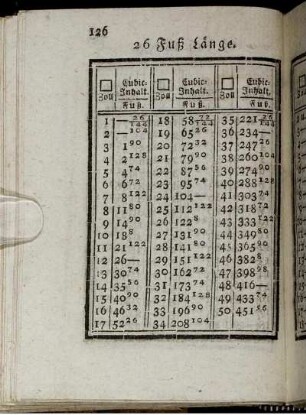 126
26 Fuß Länge.
□ Zoll Cubic-Inhalt. Fuß. □ Zoll Cubic-Inhalt. Fuß. □ Zoll Cubic-Inhalt. Fuß.
1 — 26/144 18 58 72/144 35 221 26/144
2 — 104 19 65 26 36 234 —
3 1 90 20 72 32 37 247 26
4 2 128 21 79 90 38 260 104
5 4 74 22 87 56 39 274 90
6 6 72 23 95 74 40 288 128
7 8 122 24 104 — 41 303 74
8 11 80 25 112 122 42 318 72
9 14 90 26 122 8 43 333 122
10 18 8 27 131 90 44 349 80
11 21 122 28 141 80 45 365 90
12 26 — 29 151 122 46 382 8
13 30 74 30 162 72 47 398 98
14 35 56 31 173 74 48 416 —
15 40 90 32 184 128 49 433 74
16 46 32 33 196 90 50 451 56
17 52 26 34 208 104